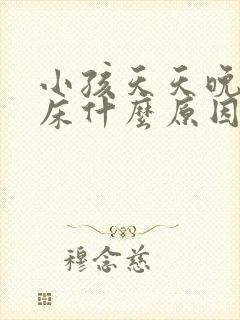 小孩天天晚
床什麼原因
穆念慈